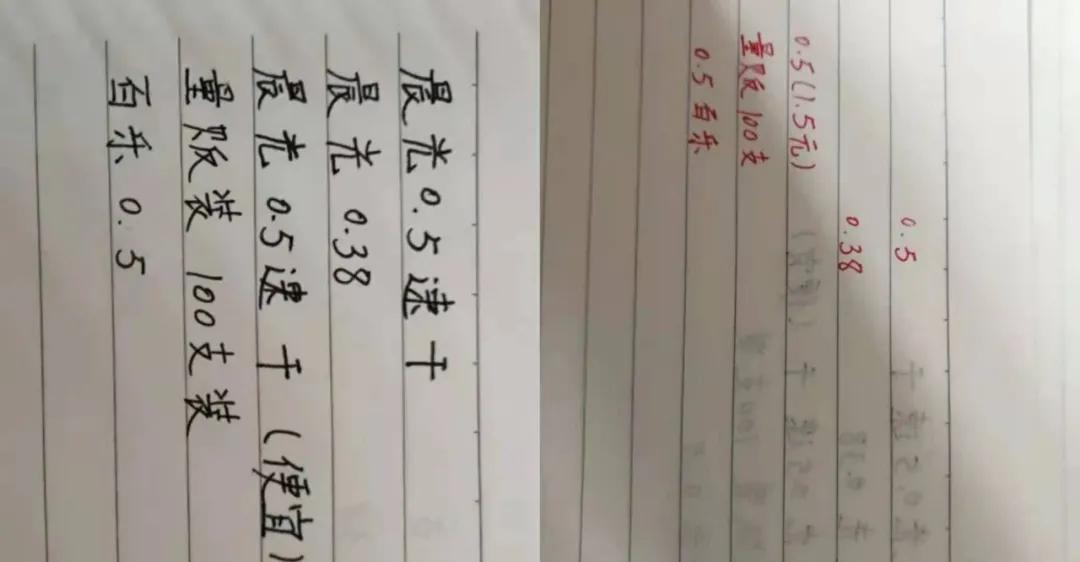 晨光0.5速干
晨光 0.38
晨光 0.5速干(便宜)
量贩装 100支装
百乐 0.5
0.5
0.38
0.5(1.5元)
量贩100支
0.5百乐